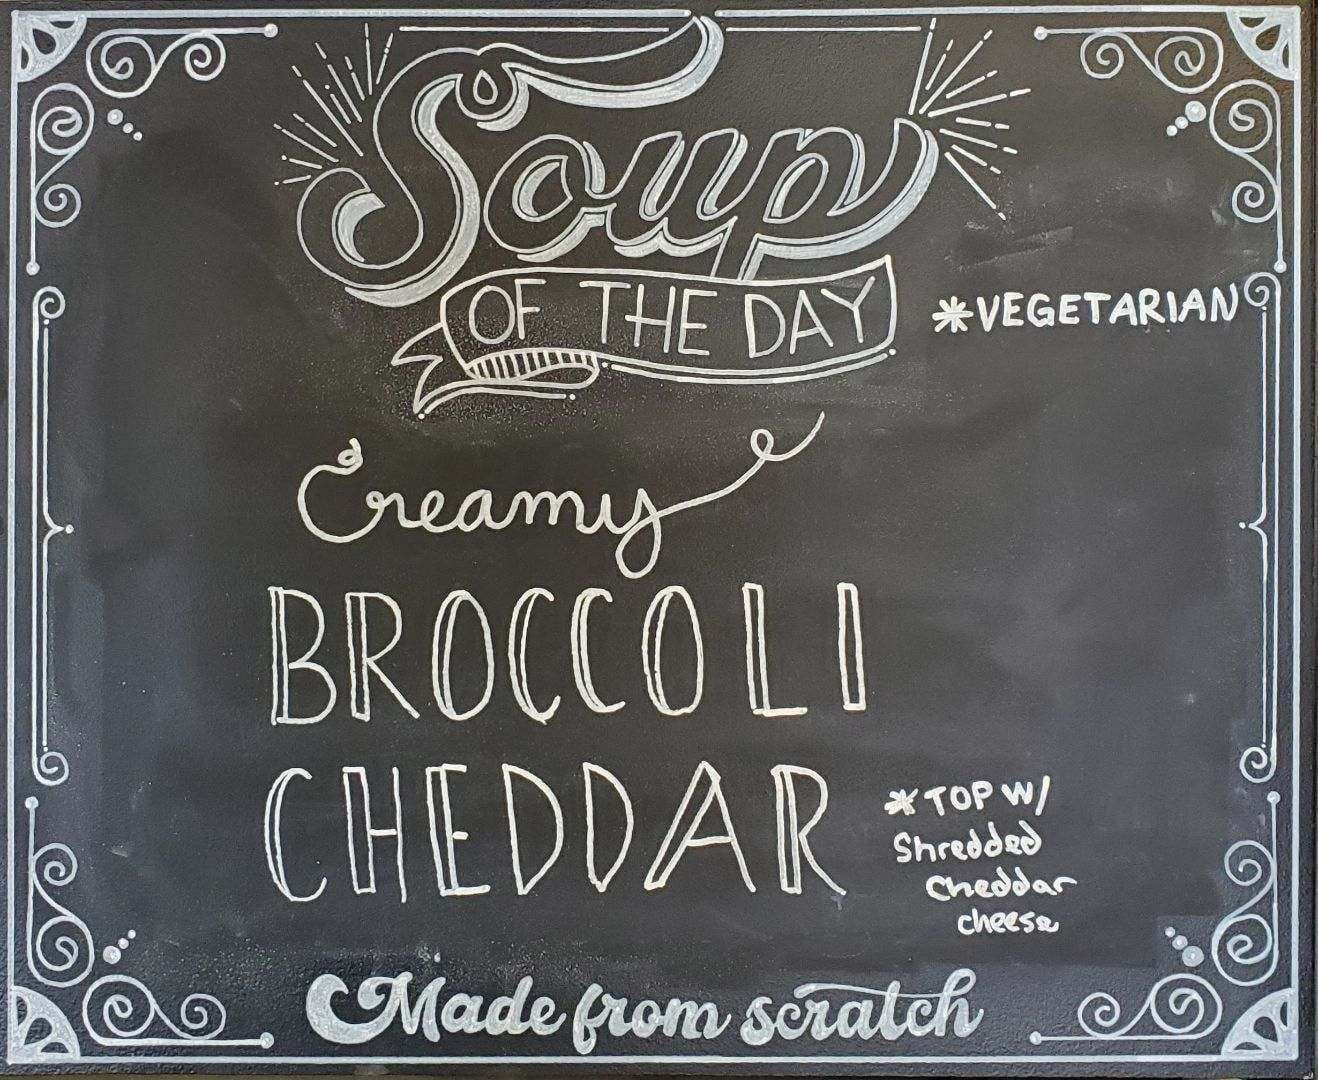 Soup
OF THE DAY
*VEGETARIAN
Creamy
BROCCOLI
CHEDDAR
*TOP W/
Shredded
Cheddar
cheese
Made from scratch